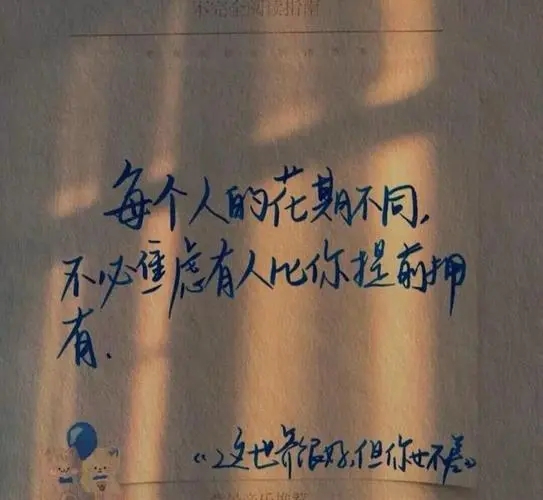 未完全阅读指南
每个人的花期不同,
不必焦虑有人比你提前拥
有.
《这世界很好,但你也不差》